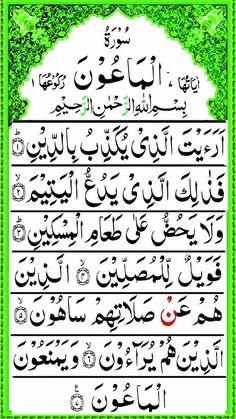 سُوْرَةُ
اٰيَاتُهَا ٧ الْمَاعُوْنَ رُكُوْعُهَا ١
بِسْمِ اللّٰهِ الرَّحْمٰنِ الرَّحِيْمِ
اَرَءَيْتَ الَّذِىْ يُكَذِّبُ بِالدِّيْنِ ۝١
فَذٰلِكَ الَّذِىْ يَدُعُّ الْيَتِيْمَ ۝٢
وَلَا يَحُضُّ عَلٰى طَعَامِ الْمِسْكِيْنِ ۝٣
فَوَيْلٌ لِّلْمُصَلِّيْنَ ۝٤ الَّذِيْنَ
هُمْ عَنْ صَلَاتِهِمْ سَاهُوْنَ ۝٥
الَّذِيْنَ هُمْ يُرَآءُوْنَ ۝٦ وَيَمْنَعُوْنَ
الْمَاعُوْنَ ۝٧